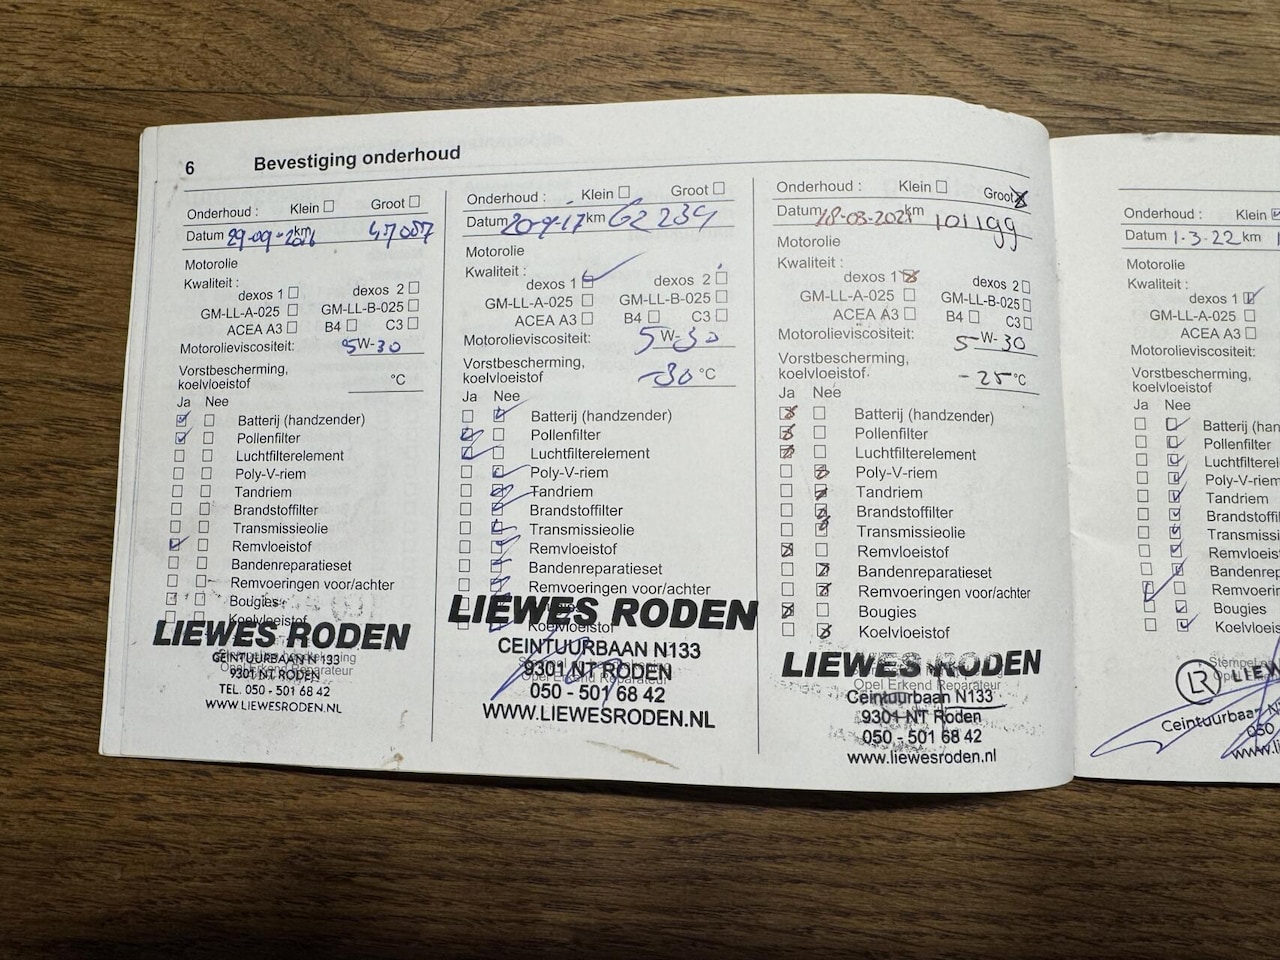 6 Bevestiging onderhoud
Onderhoud : Klein Groot
Datum 29-09-2016 km 47087
Motorolie
Kwaliteit :
dexos 1 dexos 2
GM-LL-A-025 GM-LL-B-025
ACEA A3 B4 C3
Motorolieviscositeit: 5W-30
Vorstbescherming,
koelvloeistof °C
Ja Nee
Batterij (handzender)
Pollenfilter
Luchtfilterelement
Poly-V-riem
Tandriem
Brandstoffilter
Transmissieolie
Remvloeistof
Bandenreparatieset
Remvoeringen voor/achter
Bougies
Koelvloeistof
LIEWES RODEN
CEINTUURBAAN N 133
9301 NT RODEN
Opel Erkend Reparateur
TEL. 050 - 501 68 42
WWW.LIEWESRODEN.NL
Onderhoud : Klein Groot
Datum 20-9-17 km 62239
Motorolie
Kwaliteit :
dexos 1 dexos 2
GM-LL-A-025 GM-LL-B-025
ACEA A3 B4 C3
Motorolieviscositeit: 5W-30
Vorstbescherming,
koelvloeistof -30 °C
Ja Nee
Batterij (handzender)
Pollenfilter
Luchtfilterelement
Poly-V-riem
Tandriem
Brandstoffilter
Transmissieolie
Remvloeistof
Bandenreparatieset
Remvoeringen voor/achter
Koelvloeistof
LIEWES RODEN
CEINTUURBAAN N133
9301 NT RODEN
Opel Erkend Reparateur
050 - 501 68 42
WWW.LIEWESRODEN.NL
Onderhoud : Klein Groot
Datum km 101199
Motorolie
Kwaliteit :
dexos 1 dexos 2
GM-LL-A-025 GM-LL-B-025
ACEA A3 B4 C3
Motorolieviscositeit: 5W-30
Vorstbescherming,
koelvloeistof. -25 °C
Ja Nee
Batterij (handzender)
Pollenfilter
Luchtfilterelement
Poly-V-riem
Tandriem
Brandstoffilter
Transmissieolie
Remvloeistof
Bandenreparatieset
Remvoeringen voor/achter
Bougies
Koelvloeistof
LIEWES RODEN
Opel Erkend Reparateur
Ceintuurbaan N133
9301 NT Roden
050 - 501 68 42
www.liewesroden.nl
Onderhoud : Klein
Datum 1-3-22 km
Motorolie
Kwaliteit :
dexos 1
GM-LL-A-025
ACEA A3
Motorolieviscositeit:
Vorstbescherming,
koelvloeistof
Ja Nee
Batterij (han
Pollenfilter
Luchtfilterel
Poly-V-riem
Tandriem
Brandstoffil
Transmissi
Remvloeist
Bandenrep
Remvoerin
Bougies
Koelvloeis
LR LIEW
Ceintuurbaan N
050
www.li